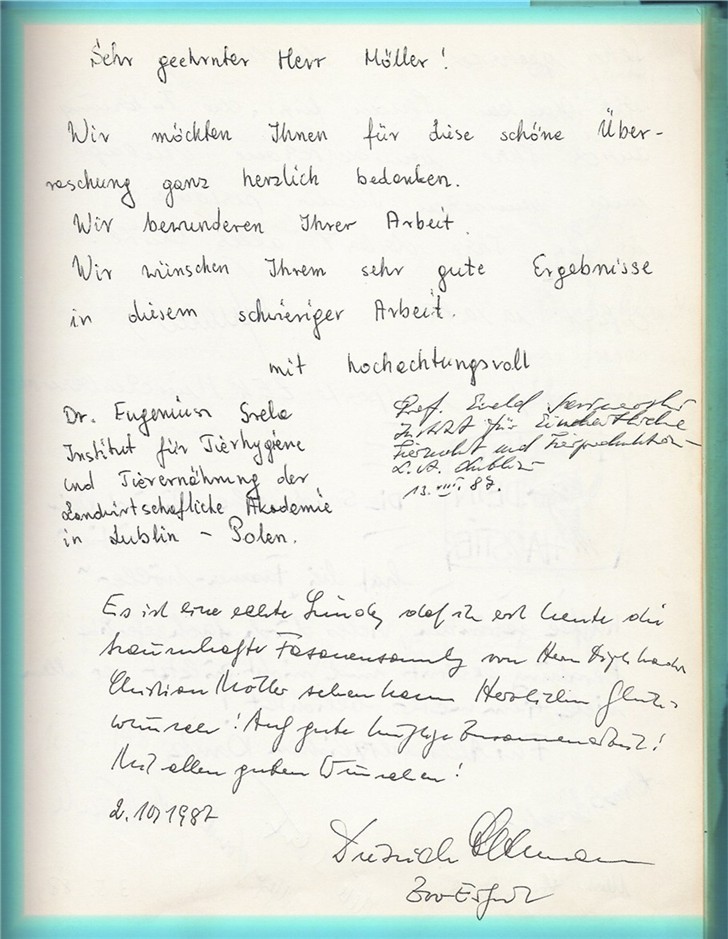 Sehr geehrnter Herr Möller!
Wir möchten Ihnen für diese schöne Über-
raschung ganz herzlich bedanken.
Wir bewunderen Ihrer Arbeit.
Wir wünschen Ihrem sehr gute Ergebnisse
in diesem schwieriger Arbeit.
mit hochachtungsvoll
Dr. Eugeniusz
Institut für Tierhygiene
und Tierernährung der
Landwirtschafliche Akademie
in Lublin - Polen.
Prof. Ewald
für
Tierzucht und Tierproduktion
L. A. Lublin
13.VIII.87.
Es ist eine echte Sünde, daß ich erst heute die
traumhafte Fasanensammlg von Herrn
Christian Möller sehen kann Herzlichen Glück-
wunsch! Auf gute künftige Zusammenarbeit!
Mit allen guten Wünschen!
2.10.1987
Dietrich
Zoo Erfurt